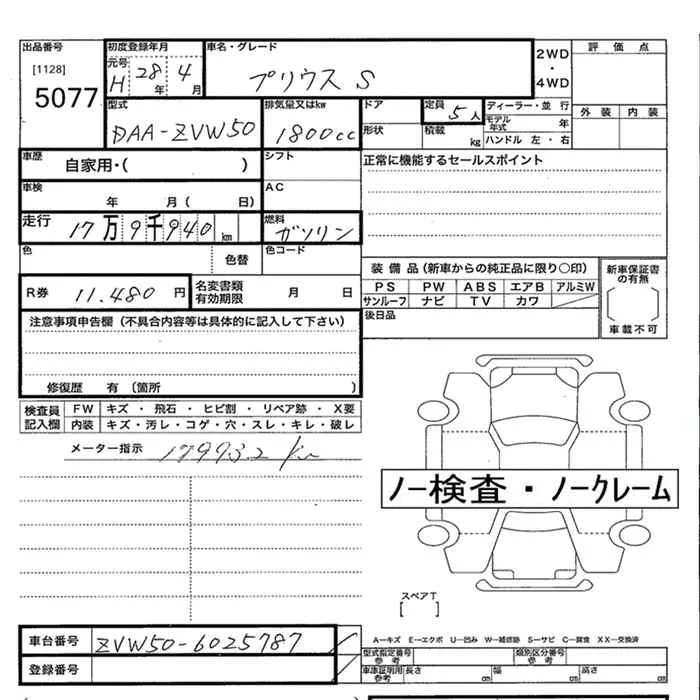 出品番号 初度登録年月 車名・グレード 2WD・4WD 評価点
[1128] 元号 H 28年 4月 プリウス S
5077 外装 内装
型式 排気量又はkw ドア 定員 5人 ディーラー・並行
DAA-ZVW50 1800cc 形状 積載 kg モデル年式 年
ハンドル 左・右
車歴 自家用・( ) シフト 正常に機能するセールスポイント
車検 年 月( 日) AC
走行 17万9千940km 燃料 ガソリン
色 色替 色コード
装備品(新車からの純正品に限り○印) 新車保証書の有無
R券 11.480円 名変書類有効期限 月 日 PS PW ABS エアB アルミW
サンルーフ ナビ TV カワ
車載不可
注意事項申告欄(不具合内容等は具体的に記入して下さい) 後日品
修復歴 有(箇所 )
検査員記入欄 FW キズ・飛石・ヒビ割・リペア跡・X要
内装 キズ・汚レ・コゲ・穴・スレ・キレ・破レ
メーター指示 km
ノー検査・ノークレーム
スペアT
[ ]
車台番号 ZVW50-6025787
A―キズ E―エクボ U―凹み W―補修跡 S―サビ C―腐食 XX―交換済
型式指定番号 参考 類別区分番号 参考
登録番号 車庫証明用参考 長さ cm 幅 cm 高さ cm